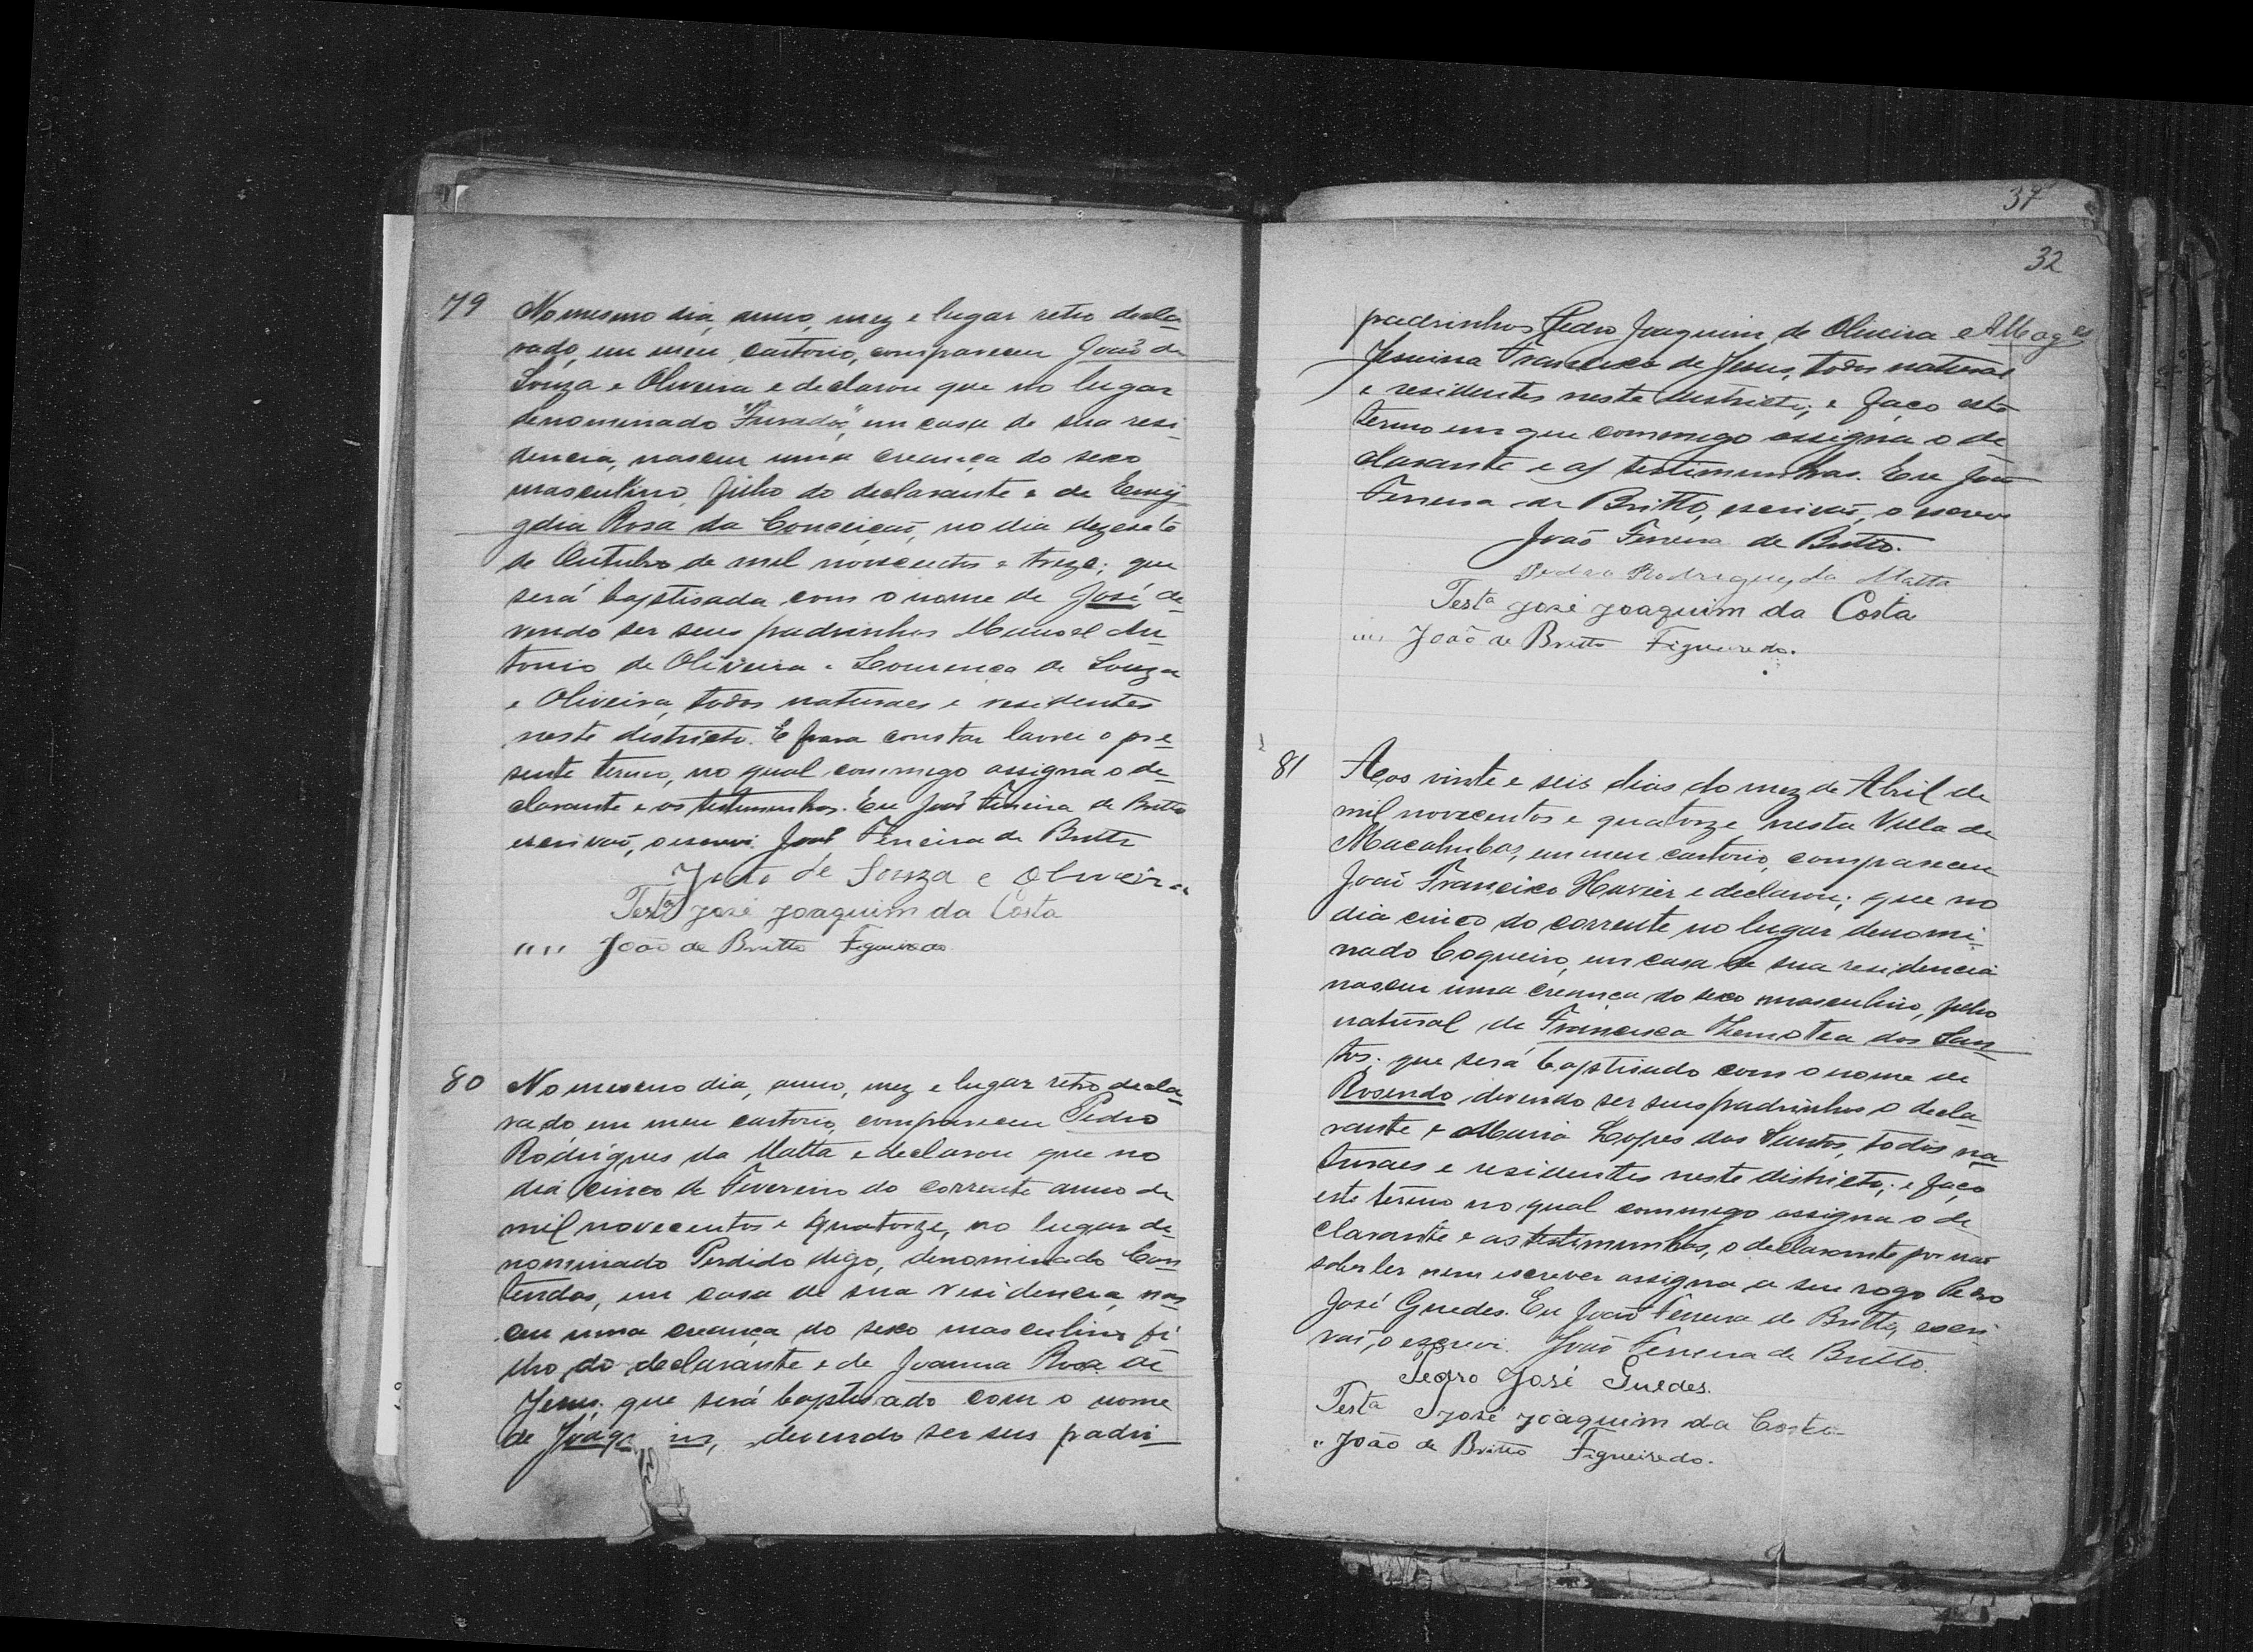 79 No mesmo dia, anno, mez e lugar retro decla-
rado, em meu cartorio, compareceu João de
Souza e Oliveira e declarou que no lugar
denominado "Furados", em casa de sua resi-
dencia, nasceu uma creança do sexo
masculino, filho do declarante e de Emy-
gdia Rosa da Conceição, no dia dezesete
de Outubro de mil novecentos e treze; que
será baptisada com o nome de José, de-
vendo ser seus padrinhos Manoel An-
tonio de Oliveira e Lourença de Souza
e Oliveira, todos naturaes e residentes
neste districto. E para constar lavrei o pre-
sente termo, no qual commigo assigna o de-
clarante e as testemunhas. Eu João Ferreira de Britto
escrivão, o escrevi. João Ferreira de Britto
João de Souza e Oliveira
Testa José Joaquim da Costa
"" João de Britto Figueiredo
80 No mesmo dia, anno, mez e lugar retro decla-
rado em meu cartorio, compareceu Pedro
Rodrigues da Matta e declarou que no
dia cinco de Fevereiro do corrente anno de
mil novecentos e quatorze, no lugar de-
nominado Perdido digo, denominado Con-
tendas, em casa de sua residencia, nas-
ceu uma creança do sexo masculino fi-
lho do declarante e de Joanna Rosa de
Jesus; que será baptisado com o nome
de devendo ser seus padri-
37
32
padrinhos Pedro Joaquim de Oliveira e
Jesuina Francisca de Jesus, todos naturaes
e residentes neste districto; e faço este
termo em que commigo assigna o de-
clarante e as testimunhas. Eu João
Ferreira de Britto, escrivão, o escrevi
João Ferreira de Britto.
Pedro Rodrigues da Matta
Testa José Joaquim da Costa
"" João de Britto Figueiredo.
81 Aos vinte e seis dias do mez de Abril de
mil novecentos e quatorze, nesta Villa de
Macahubas, em meu cartorio, compareceu
João Francisco Xavier e declarou; que no
dia cinco do corrente no lugar denomi-
nado Coqueiro, em casa de sua residencia
nasceu uma creança do sexo masculino, filho
natural de Francisca Themotea dos San-
tos; que será baptisado com o nome de
Rosendo, devendo ser seus padrinhos o decla-
rante e Maria Lopes dos Santos, todos na-
turaes e residentes neste districto; e faço
este termo no qual commigo assigna o de-
clarante e as testimunhas, o declarante por não
saber ler nem escrever assigna a seu rogo Pedro
José Guedes. Eu João Ferreira de Britto, escri-
vão, o escrevi. João Ferreira de Britto.
Pedro José Guedes.
Testa José Joaquim da Costa
" João de Britto Figueiredo.